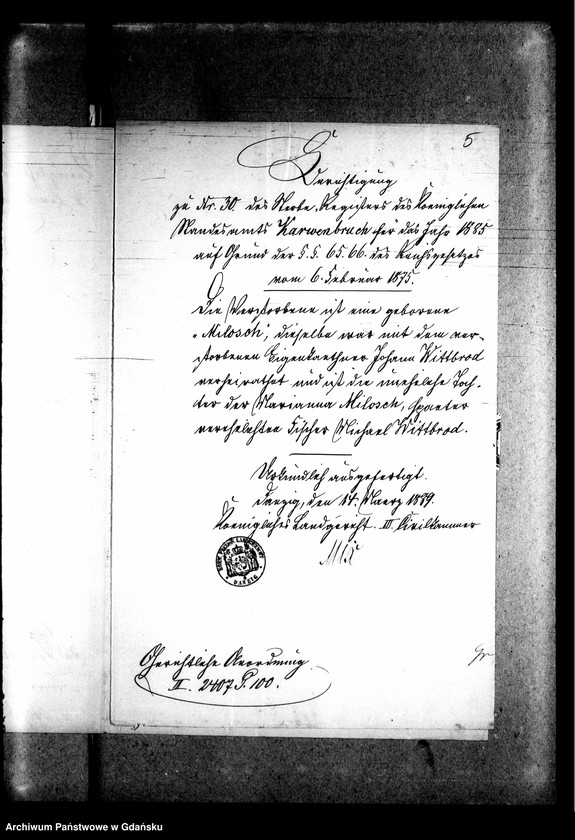 5
Berichtigung
zu Nr. 30. des Sterbe-Registers des Koeniglichen
Standesamts Karwenbruch für das Jahr 1885
auf Grund der §.§. 65. 66. des Reichsgesetzes
vom 6. Februar 1875.
Die Verstorbene ist eine geborene
"Milosch", dieselbe war mit dem ver-
storbenen Eigenkaethner Johann Wittbrod
verheirathet und ist die uneheliche Toch-
ter der Marianna Milosch, spaeter
verehelichten Fischer Michael Wittbrod.
Urkundlich ausgefertigt.
Danzig, den 14. Maerz 1889.
Koenigliches Landgericht. III Civilkammer
DANZIG
Gerichtliche Anordnung
II. 2407 P. 100.
Archiwum Państwowe w Gdańsku